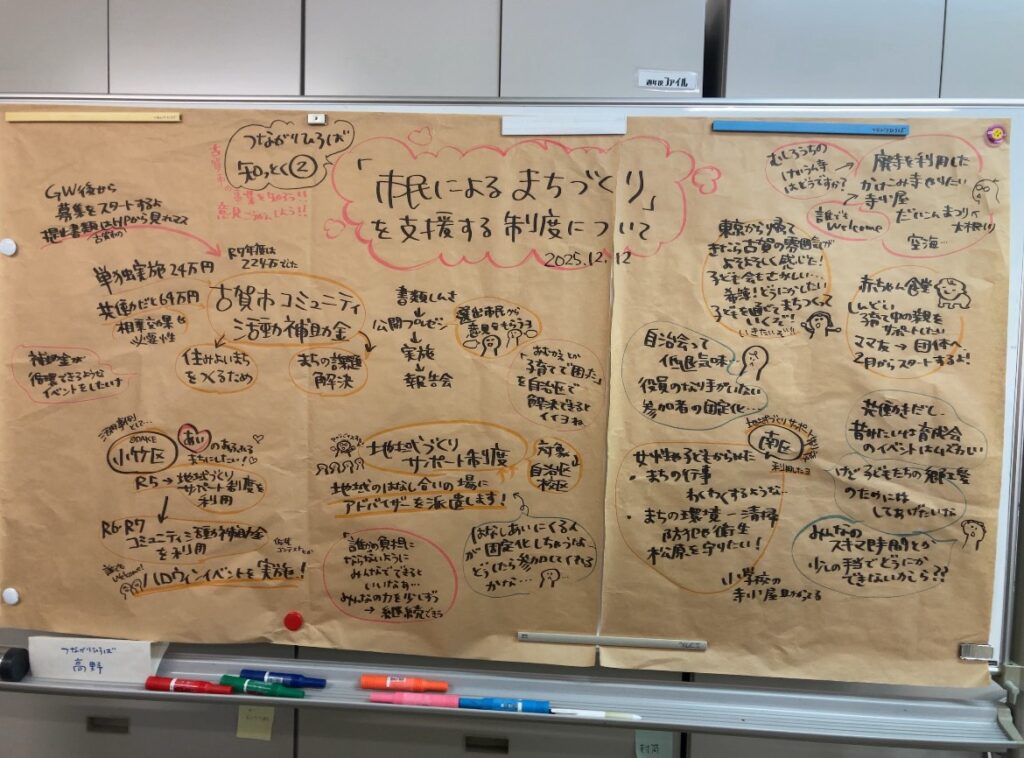 週年後ファイル
つながりひろば
知っとく②
意見
「市民によるまちづくり」
を支援する制度について
2025.12.12
GW後から
募集をスタートするよ
提出書類はHPから見れマス
古賀市の
R7年度は
224万でした
単独実施24万円
共働だと69万円
相乗効果
必要性
古賀市コミュニティ
活動補助金
住みよいまち
をつくるため
まちの課題
解決
補助金が
イベントをしたいナ
書類しんさ
公開プレゼン
実施
報告会
選出市民から
意見をもらうヨ
子育てで困った」
を自治区で
解決できると
イイヨね
小竹区
ODAKE
あい
のあふれる
まちにしたい!
R5→地域づくり
サポート制度を
利用
R6・R7
コミュニティ活動補助金
を利用
ハロウィンイベントを実施!
地域づくり
サポート制度
地域のはなし合いの場に
アドバイザーを派遣します!
対象
自治区
校区
誰かの負担に
ならないように
みんなでできると
いいなぁ…
みんなの力を少しずつ
→継続できる
はなしあいにくる人
が固定化しちゃうな…
どうしたら参加してくれる
かな…
むしろうちの
けいうん寺
はどうですか?
廃寺を利用した
かけこみ寺やりたい
寺小屋
誰でも
welcome
空海…
東京から帰って
きたら古賀の雰囲気が
よそよそしく感じた!
子ども会もさみしい…
希薄!どうにかしたい
子どもを通じてまちつくって
いくぞ!
いきたいぞ!!
赤ちゃん食堂
しんどい
子育て中の親を
サポートしたい
ママ友→団体へ
2月からスタートするよ!
自治会って
低迷気味
役員のなり手がいない
参加者の固定化…
地域づくりサポート
南区
利用したヨ
まちの行事
わくわくするような…
まちの環境ー清掃
防犯や衛生
松原を守りたい!
小学校の
寺小屋
共働きだと…
昔みたいな育成会
のイベントはむずかしい
けど子どもたちの郷土愛
のためには
してあげたいな
みんなの
スキマ時間とか
少しの手当でどうにか
できないかしら??
つながりひろば
高野